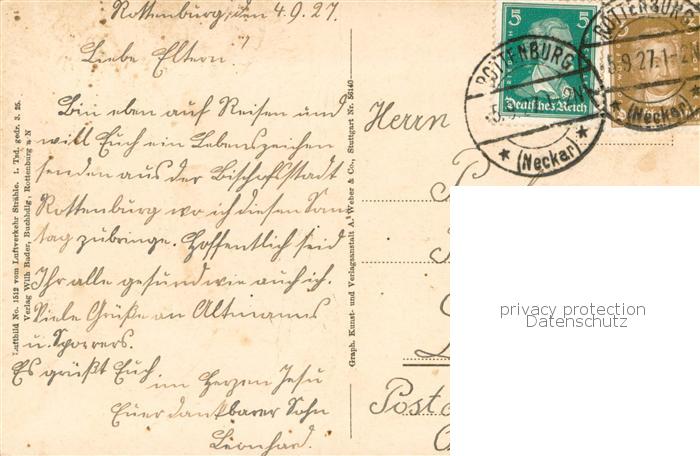 Rottenburg, den 4.9.27.
Liebe Eltern!
Bin eben auf Reisen und
will Euch ein Lebenszeichen
senden aus der Bischofsstadt
Rottenburg wo ich diesen Sonn
tag zubringe. Hoffentlich seid
Ihr alle gesund wie auch ich.
Viele Grüße an Altmanns
u. Sporrers.
Es grüßt Euch
im Herzen Jesu
Euer dankbarer Sohn
Leonhard.
Luftbild No. 1512 vom Luftverkehr Strähle. 1. Tsd. gedr. 3. 25.
Verlag Wilh. Bader, Buchhdlg., Rottenburg a N
Graph. Kunst- und Verlagsanstalt A. Weber & Co., Stuttgart Nr. 5640
5 5
Deutsches Reich
ROTTENBURG
(Neckar)
ROTTENBURG
5.9.27.1-2
(Neckar)
Herrn
Post
privacy protection
Datenschutz